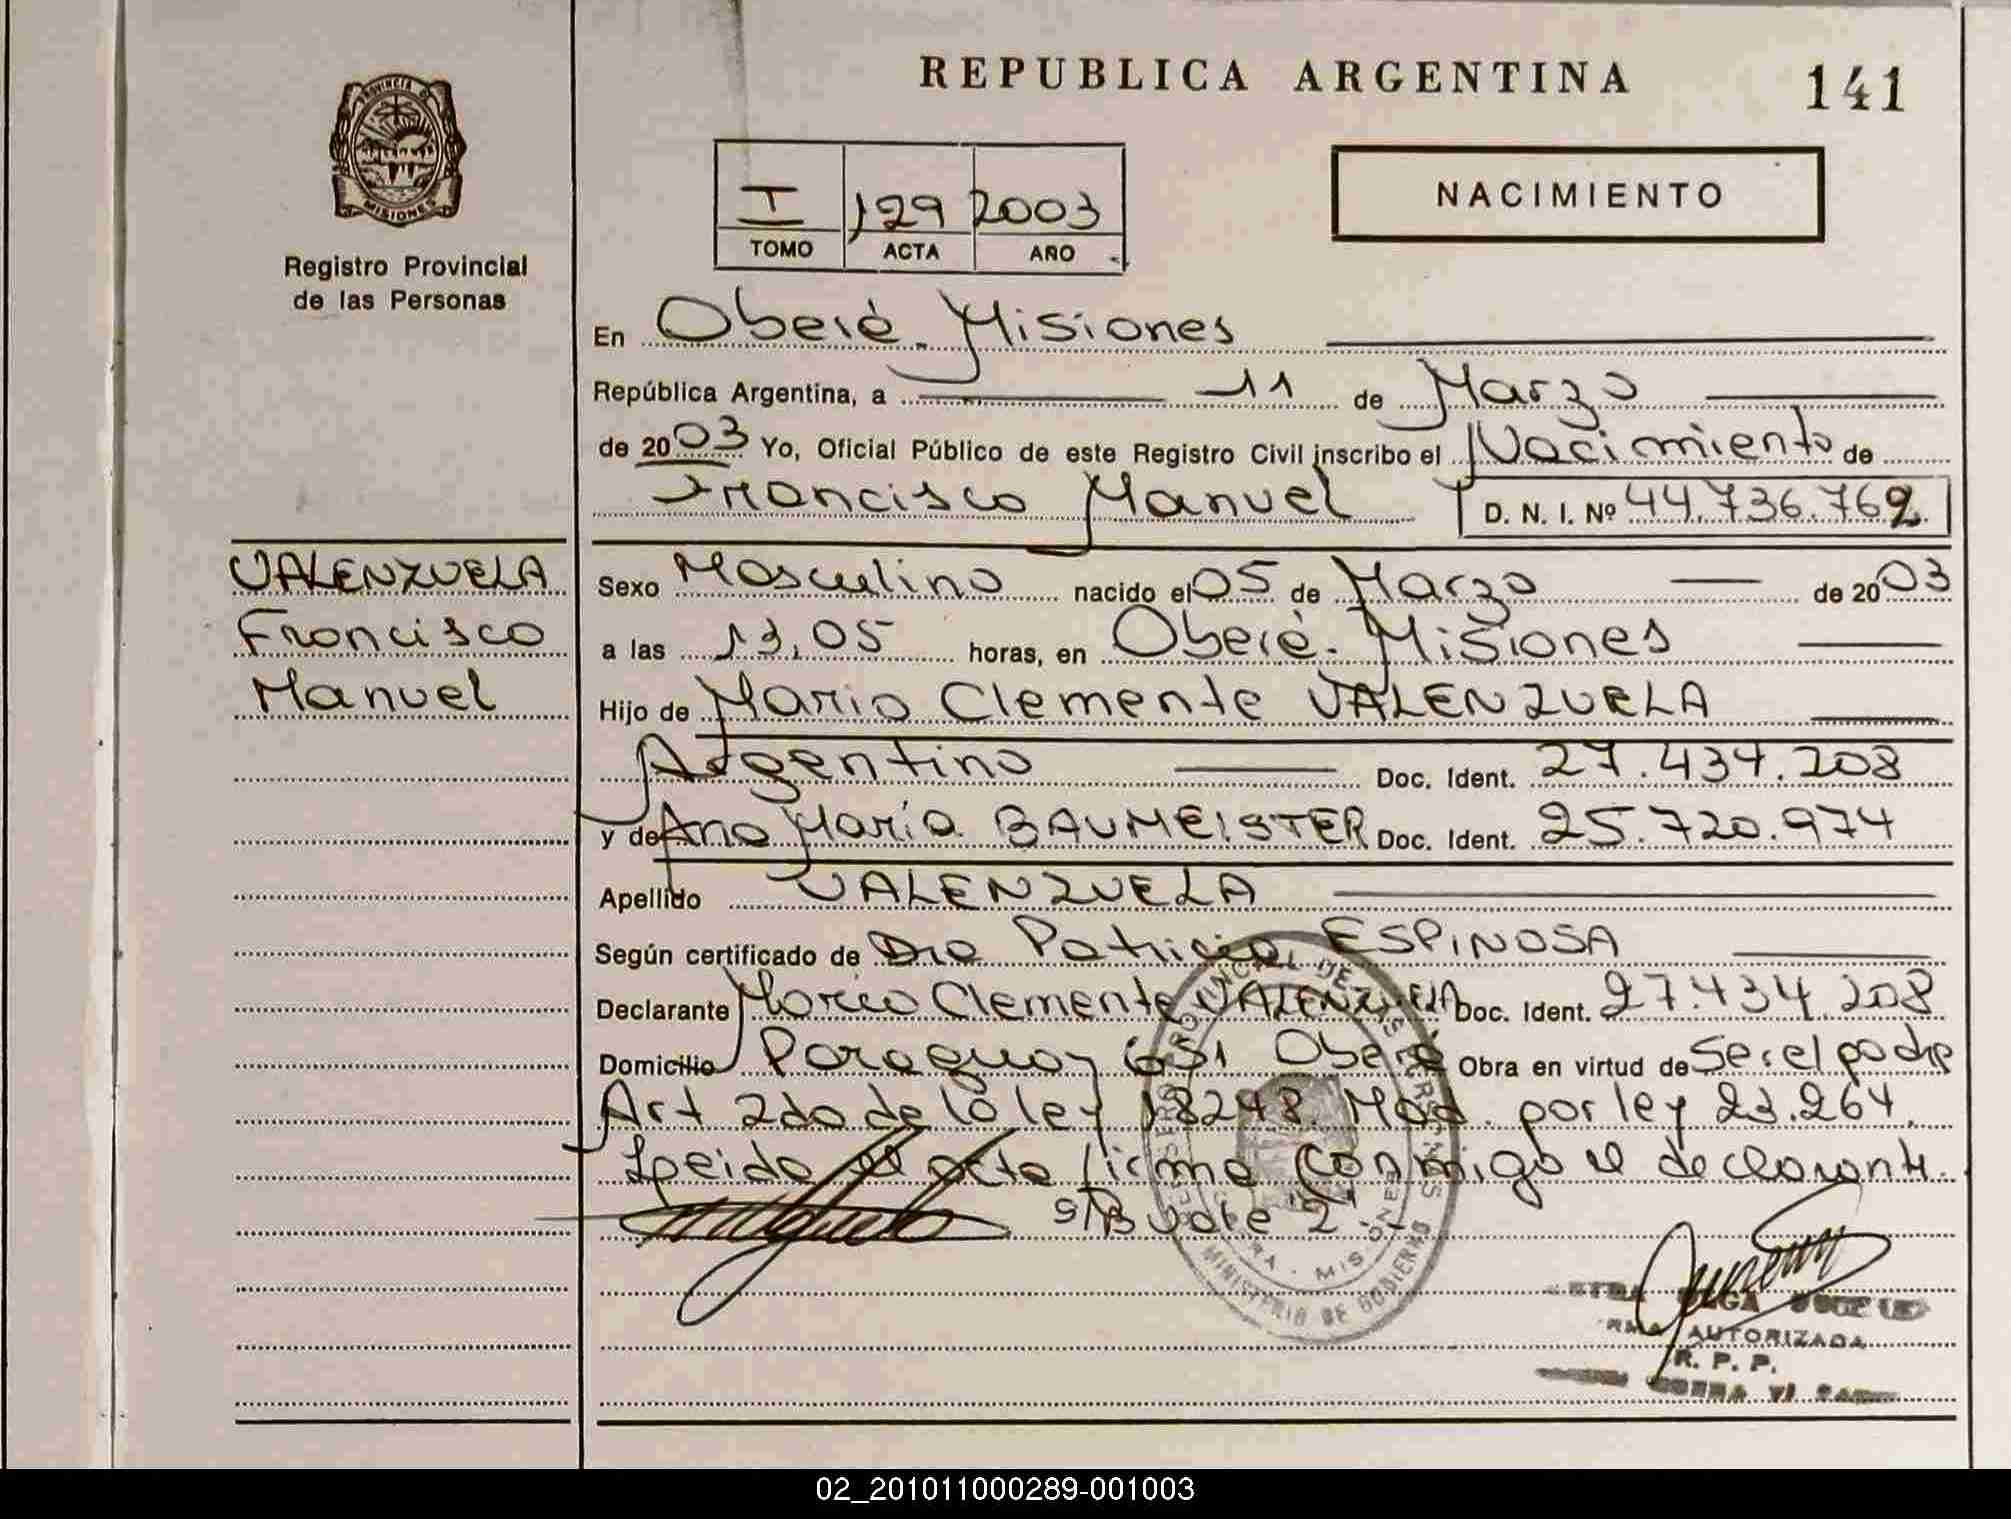 REPUBLICA ARGENTINA
141
PROVINCIA DE MISIONES
Registro Provincial
de las Personas
I 129 2003
TOMO ACTA AÑO
NACIMIENTO
En Oberá. Misiones
República Argentina, a 11 de Marzo
de 2003 Yo, Oficial Público de este Registro Civil inscribo el Nacimiento de
Francisco Manuel D. N. I. Nº 44.736.762
VALENZUELA
Francisco
Manuel
Sexo Masculino nacido el 05 de Marzo de 2003
a las 13,05 horas, en Oberá. Misiones
Hijo de Mario Clemente VALENZUELA
Argentino Doc. Ident. 27.434.208
y de Ana María BAUMEISTER Doc. Ident. 25.720.974
Apellido VALENZUELA
Según certificado de Dra Patricia ESPINOSA
Declarante Mario Clemente VALENZUELA Doc. Ident. 27.434.208
Domicilio Paraguay 651 Oberá Obra en virtud de Ser el padre
Art 2do de la ley 18248 Mod. por ley 23.264.
Leida el acta firma conmigo el declarante.
s/B vale 2
MINISTERIO DE GOBIERNO
OLGA
AUTORIZADA
R. P. P.
02_201011000289-001003